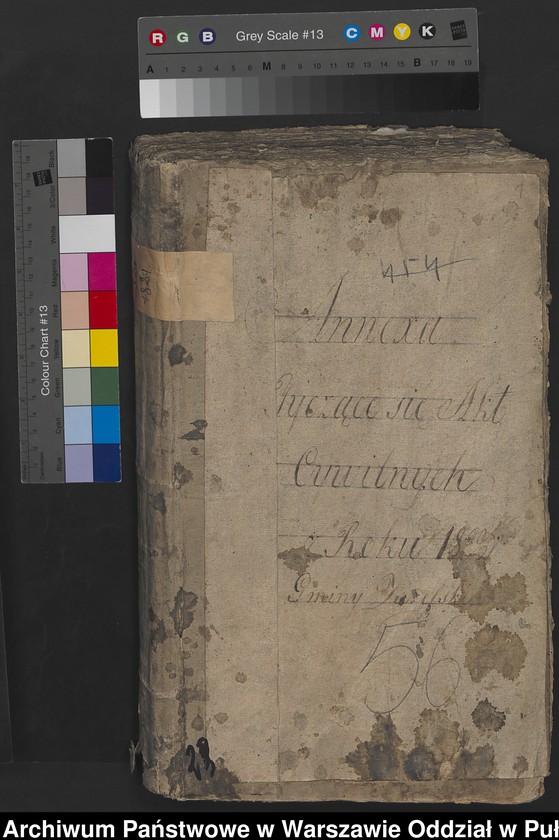 R G B Grey Scale #13 C M Y K
A 1 2 3 4 5 6 M 8 9 10 11 12 13 14 15 B 17 18 19
Colour Chart #13
Blue Cyan Green Yellow Red Magenta White 3/Color Black
454
Annexa
tyczące się Akt
Cywilnych
z Roku
Gminy
56
23
Archiwum Państwowe w Warszawie Oddział w Pu